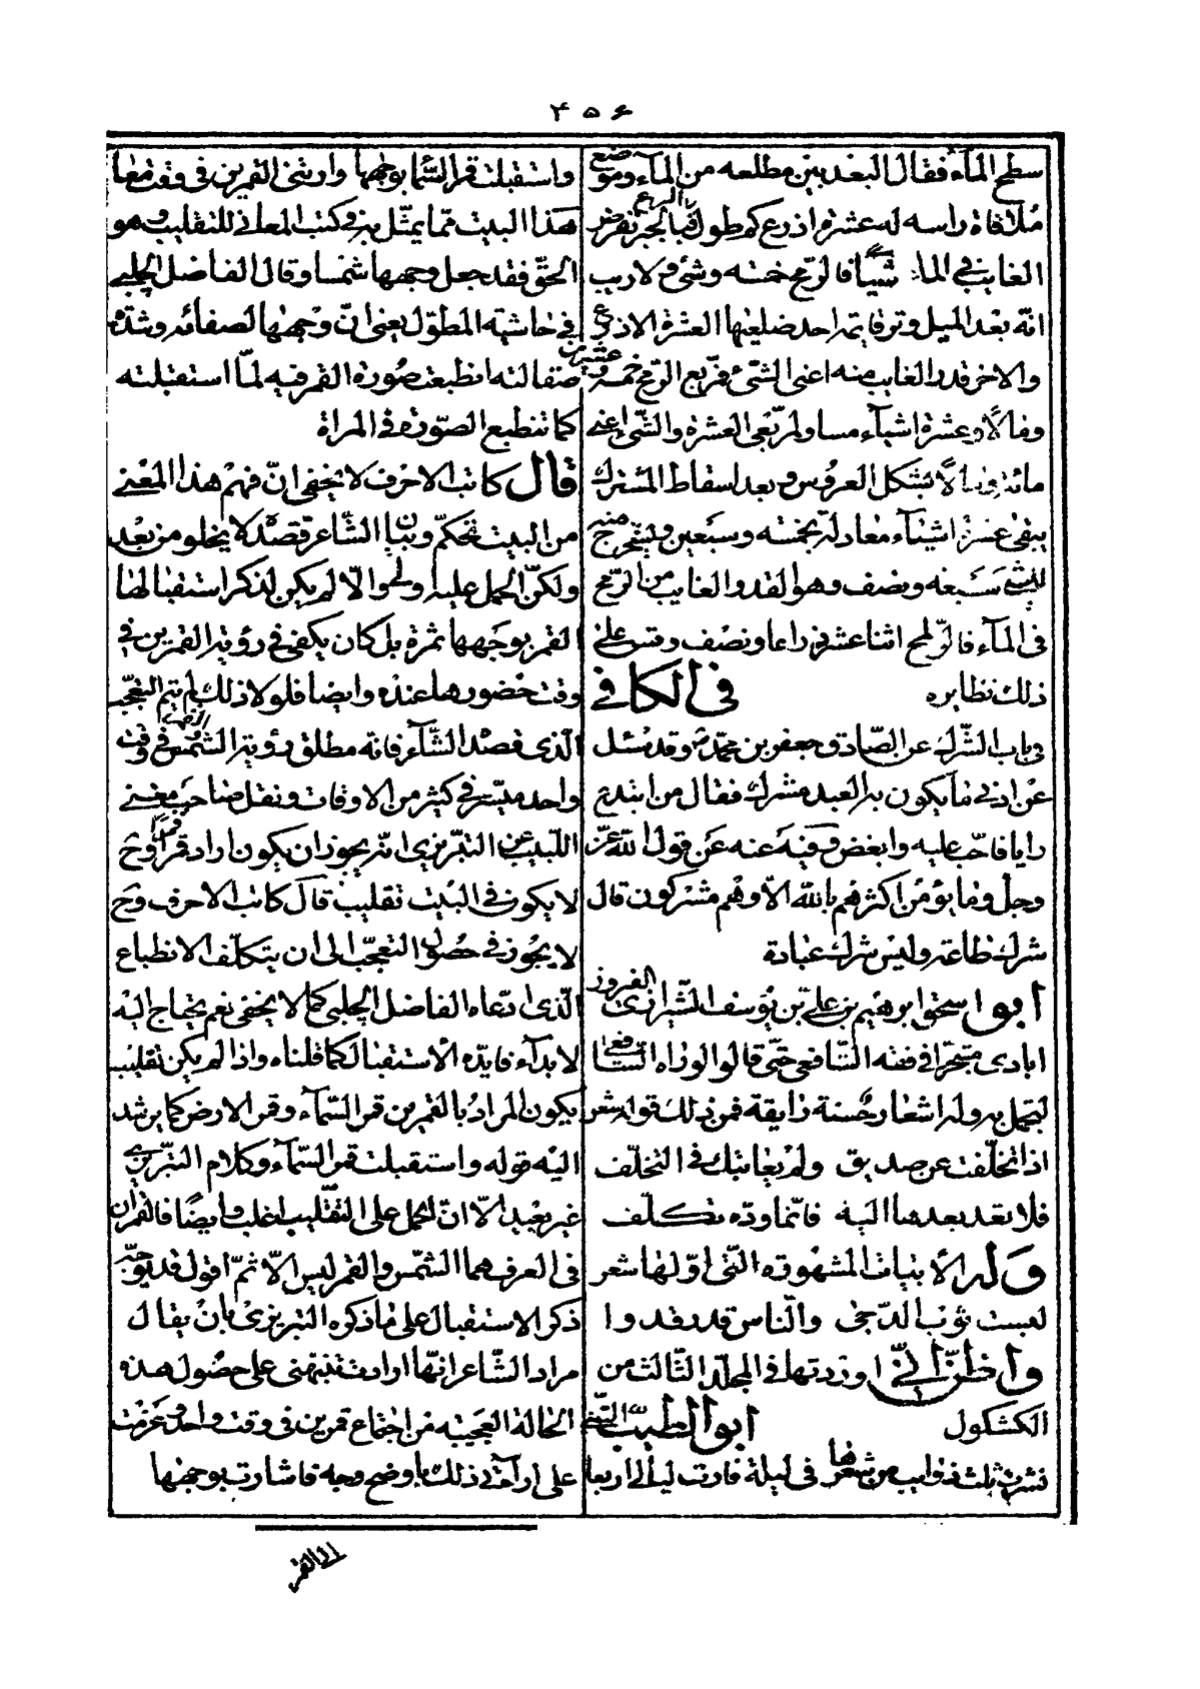 ۴۵۶
سطح الماء فقال البعد بين مطلعه من الماء وموضع
ملاقاة راسه له عشرة اذرع كم طول الرمح فبالجبر نفرض
الغايب في الماء شيئا فالرمح خمسة وشئ ولا ريب
انه بعد الميل وتر قايمة احد ضلعيها العشرة الاذرع
والاخر قدر الغايب منه اعنى الشئ فمربع الرمح خمسة وعشرين
ومالا وعشرة اشياء مساو لمربعى العشرة والشئ اعنى
مائة ومالا بشكل العروس وبعد اسقاط المشترك
يبقى عشرة اشياء معادلة بخمسة وسبعين فيخرج منه
للشئ سبعة ونصف وهو القدر الغايب من الرمح
فى الماء فالرمح اثنا عشر ذراعا ونصف وقس على
ذلك نظايره في الكافي
فى باب الشرك عن الصادق جعفر بن محمد وقد سئل
عن ادنى ما يكون به العبد مشرك فقال من ابتدع
رايا فاحب عليه وابغض وفيه عنه عن قول الله عز
وجل وما يؤمن اكثرهم بالله الا وهم مشركون قال
شرك طاعة وليس شرك عبادة
ابو اسحق ابرهيم بن على بن يوسف الشيرازى الفيروز
ابادى متبحرا في فقه الشافعي حتى قالوا لو راه الشافعى
لتجمل به وله اشعار حسنة رايقة فمن ذلك قوله شعر
اذا تخلفت عن صديق ولم يعاتبك فى التخلف
فلا تعد بعدها اليه فانما وده تكلف
وله الابيات المشهورة التى اولها شعر
لبست ثوب الدجى والناس قد رقدوا
واظن انى اوردتها فى المجلد الثالث من
الكشكول ابو الطيب المتنبي
نشرت ثلث ذوايب من شعرها فى ليلة فارت ليالى اربعا
واستقبلت قمر السماء بوجهها وارتنى القمرين فى وقت معا
هذا البيت مما يمثل به فى كتب المعانى للتقليب وهو
الحق فقد جعل وجهها شمسا وقال الفاضل الچلبى
في حاشية المطول يعنى ان وجهها لصفائه وشدة
صقالته انطبعت صورة القمر فيه لما استقبلته
كما تنطبع الصورة فى المراة
قال كاتب الاحرف لا يخفى ان فهم هذا المعنى
من البيت تحكم وبيان الشاعر قصده لا يخلو من بعد
ولكن الحمل عليه والا لم يكن لذكر استقبالها
القمر بوجهها ثمرة بل كان يكفى فى رؤية القمرين فى
وقت حضورها عنده وايضا فلولا ذلك لم يتم التعجب
الذى قصد الشاعر فانه مطلق رؤية الشمس والقمر فى وقت
واحد ميسر فى كثير من الاوقات ونقل صاحب مغنى
اللبيب عن التبريزى انه يجوز ان يكون اراد قمرا وقمرا وح
لا يكون فى البيت تقليب قال كاتب الاحرف وح
لا يجوز فى حصول التعجب الى ان يتكلف الانطباع
الذى ادعاه الفاضل الچلبى كما لا يخفى نعم يحتاج اليه
لابداء فايدة الاستقبال كما قلناه واذا لم يكن تقليب
يكون المراد بالقمرين قمر السماء وقمر الارض كما يرشد
اليه قوله واستقبلت قمر السماء وكلام التبريزى
غير بعيد الا ان الحمل على التقليب اغلب وايضا فالقمران
فى العرف هما الشمس والقمر ليس الا ثم اقول قد يوجه
ذكر الاستقبال على ما ذكره التبريزى بان يقال
مراد الشاعر انها ارادت تنبيهى على حصول هذه
الحالة العجيبة من اجتماع قمرين فى وقت واحد وعزمت
على ارائى ذلك باوضح وجه فاشارت بوجهها
الى القمر